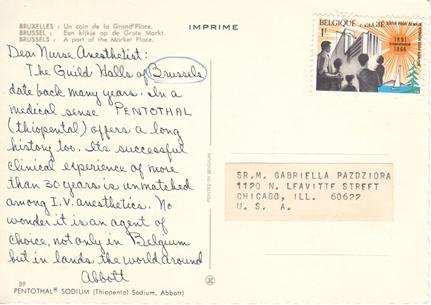 BRUXELLES : Un coin de la Grand'Place.
BRUSSEL : Een kijkje op de Grote Markt.
BRUSSELS : A part of the Marker Place.
IMPRIME
Dear Nurse Anesthetist:
The Guild Halls of Brussels
date back many years. In a
medical sense PENTOTHAL
(thiopental) offers a long
history too. Its successful
clinical experience of more
than 30 years is unmatched
among I.V. anesthetics. No
wonder it is an agent of
choice, not only in Belgium
but in lands the world around
Abbott
PENTOTHAL® SODIUM (Thiopental Sodium, Abbott)
PRINTED IN BELGIUM
BELGIQUE BELGIË
1F
1891
1966
SR.M. GABRIELLA PAZDZIORA
1120 N. LEAVITTE STREET
CHICAGO, ILL. 60622
U. S. A.